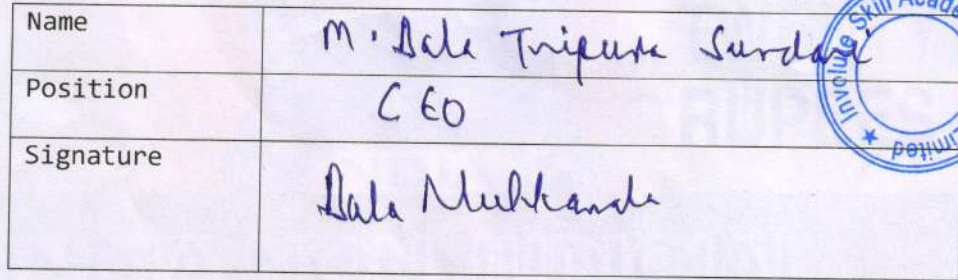 Name M. Bala Tripura Sundari
Position CEO
Signature Bala Mulkanda
Involute Skill Acade
Limited